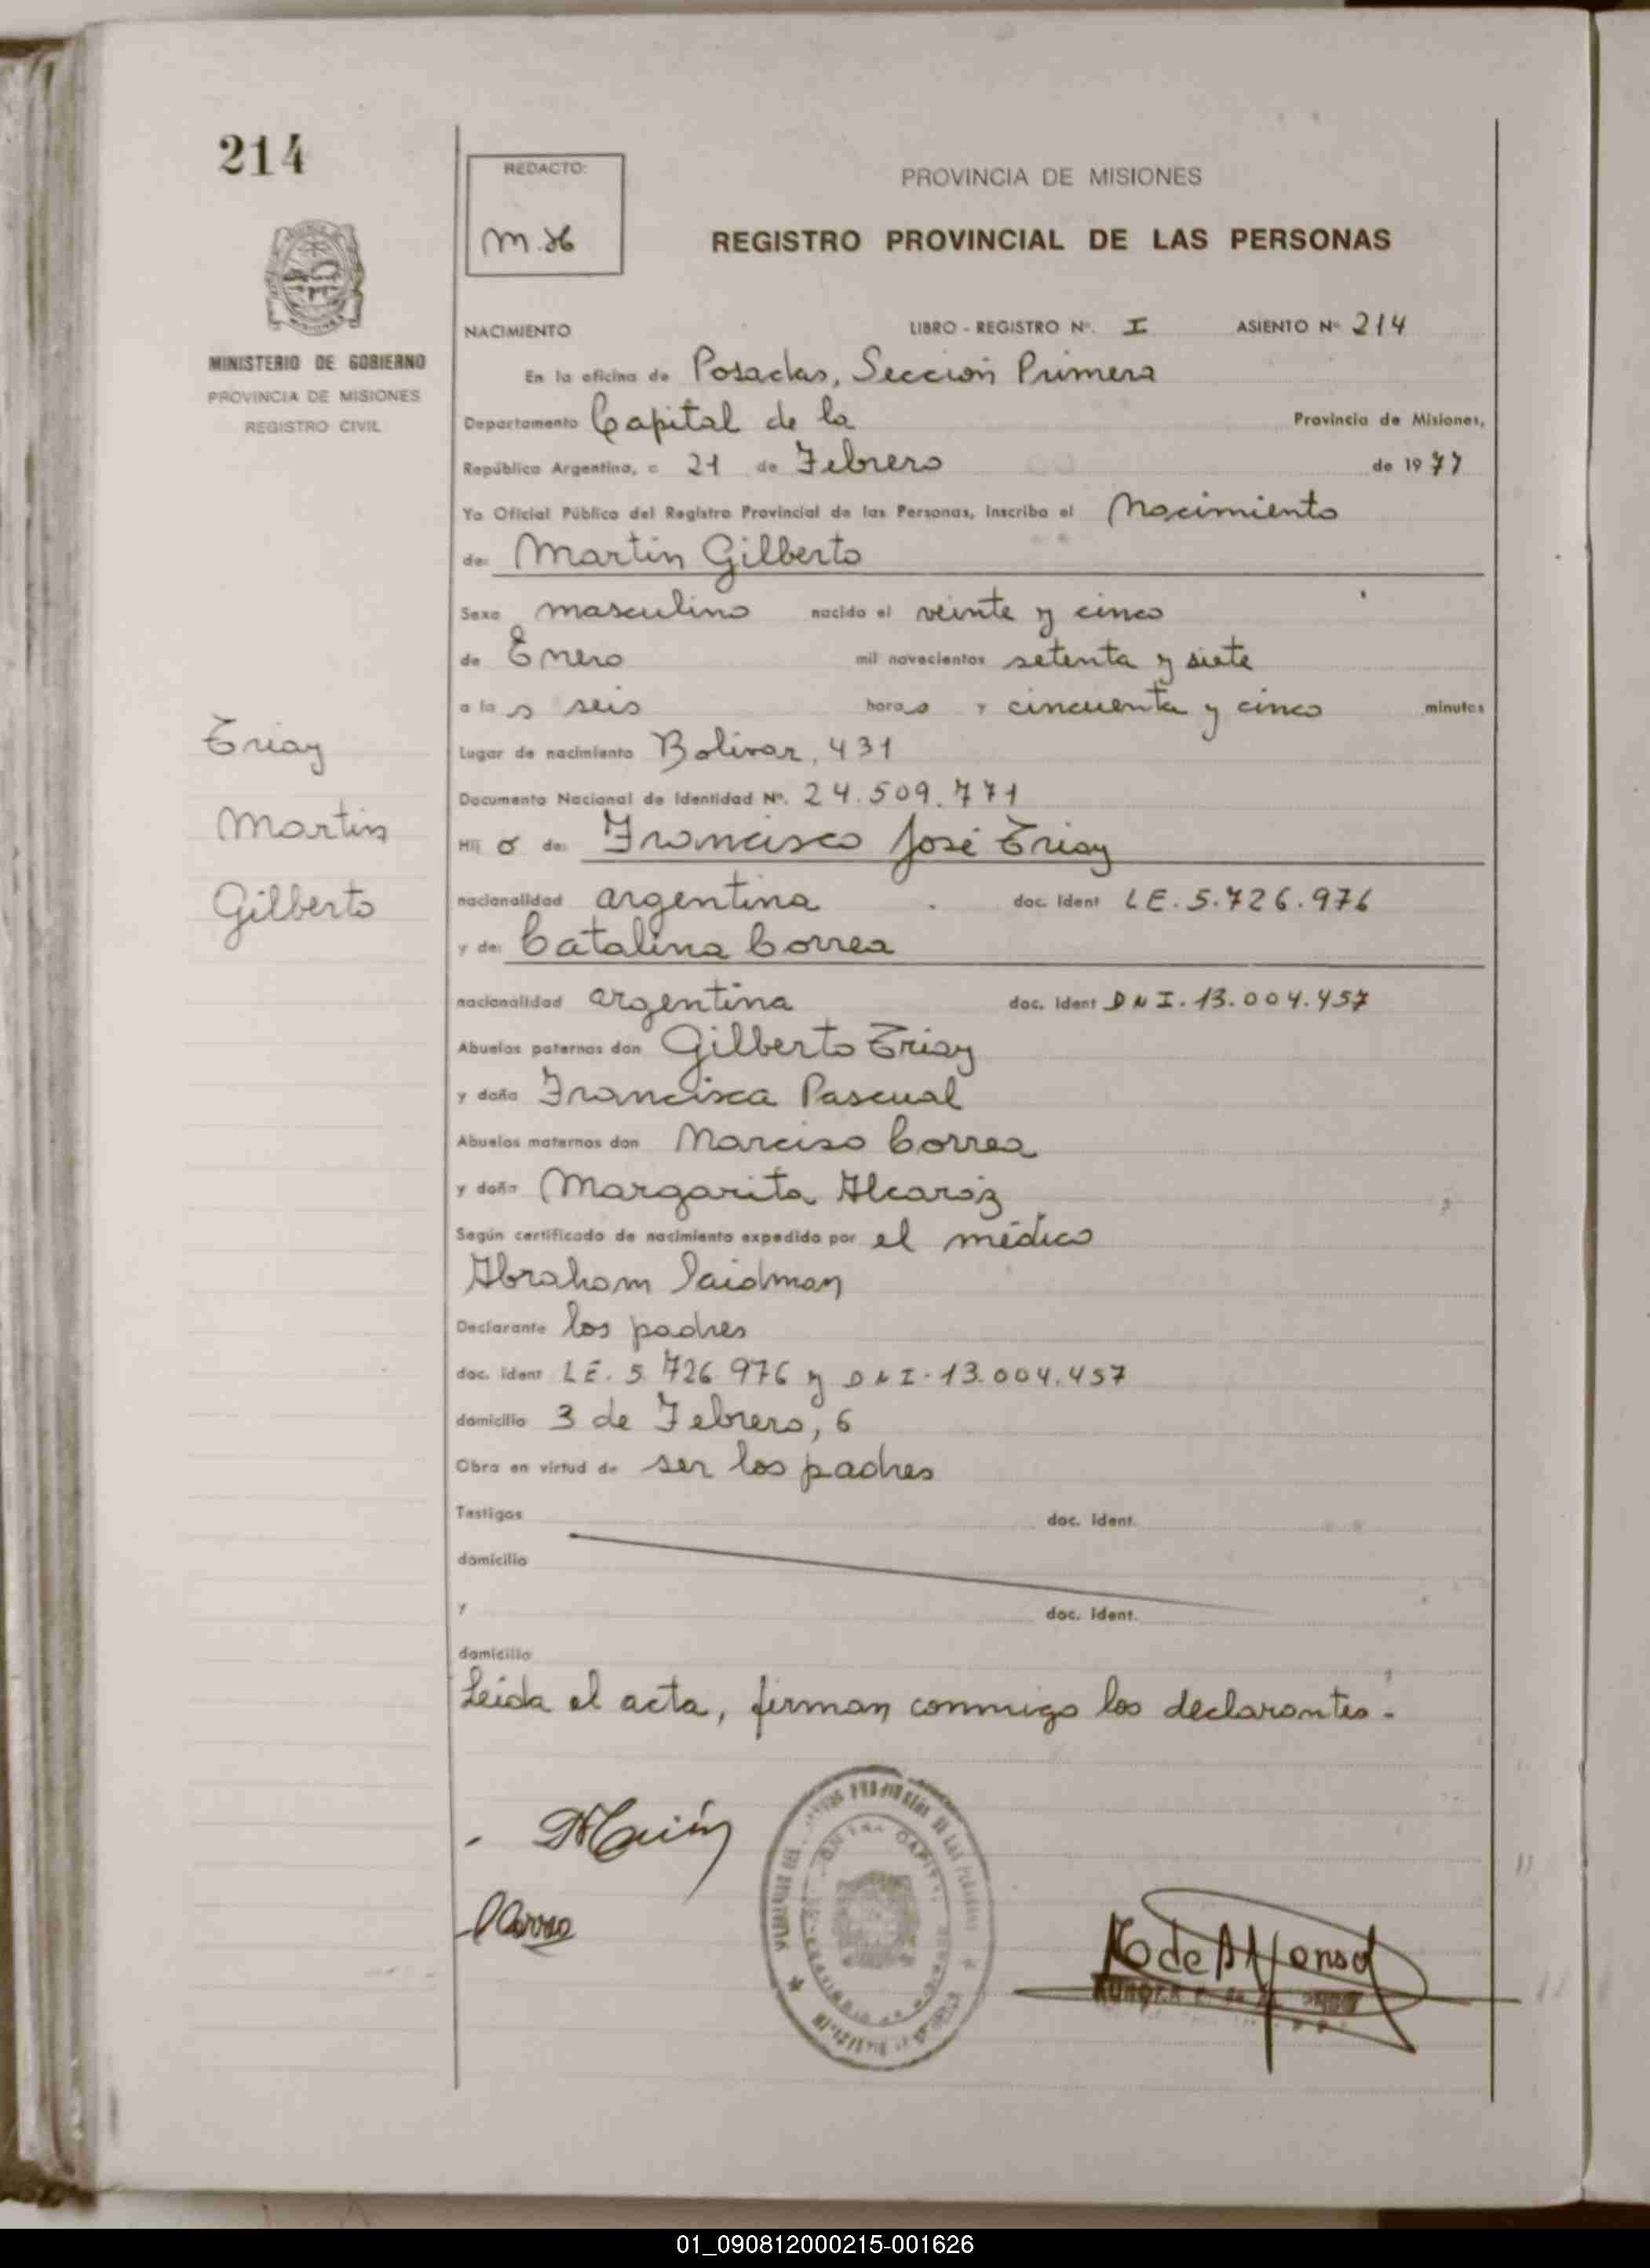 214
REDACTO:
PROVINCIA DE MISIONES
REGISTRO PROVINCIAL DE LAS PERSONAS
NACIMIENTO LIBRO - REGISTRO Nº. I ASIENTO Nº 214
MINISTERIO DE GOBIERNO
PROVINCIA DE MISIONES
REGISTRO CIVIL
En la oficina de Posadas, Sección Primera
Departamento Capital de la Provincia de Misiones,
República Argentina, a 21 de Febrero de 1977
Yo Oficial Público del Registro Provincial de las Personas, inscribo el Nacimiento
de: Martin Gilberto
Sexo masculino nacido el veinte y cinco
de Enero mil novecientos setenta y siete
a las seis horas y cincuenta y cinco minutos
Lugar de nacimiento Bolivar, 431
Documento Nacional de Identidad Nº. 24.509.771
Triay
Martin
Gilberto
Hijo de: Francisco José Triay
nacionalidad argentina doc. Ident LE. 5.726.976
y de: Catalina Correa
nacionalidad argentina doc. Ident DNI. 13.004.457
Abuelos paternos don Gilberto Triay
y doña Francisca Pascual
Abuelos maternos don Narciso Correa
y doña Margarita Alcaráz
Según certificado de nacimiento expedido por el médico
Abraham Saidman
Declarante los padres
doc. Ident LE. 5.726.976 y DNI. 13.004.457
domicilio 3 de Febrero, 6
Obra en virtud de ser los padres
Testigos doc. Ident.
domicilio
y doc. Ident.
domicilio
Leida el acta, firman conmigo los declarantes.-
01_090812000215-001626